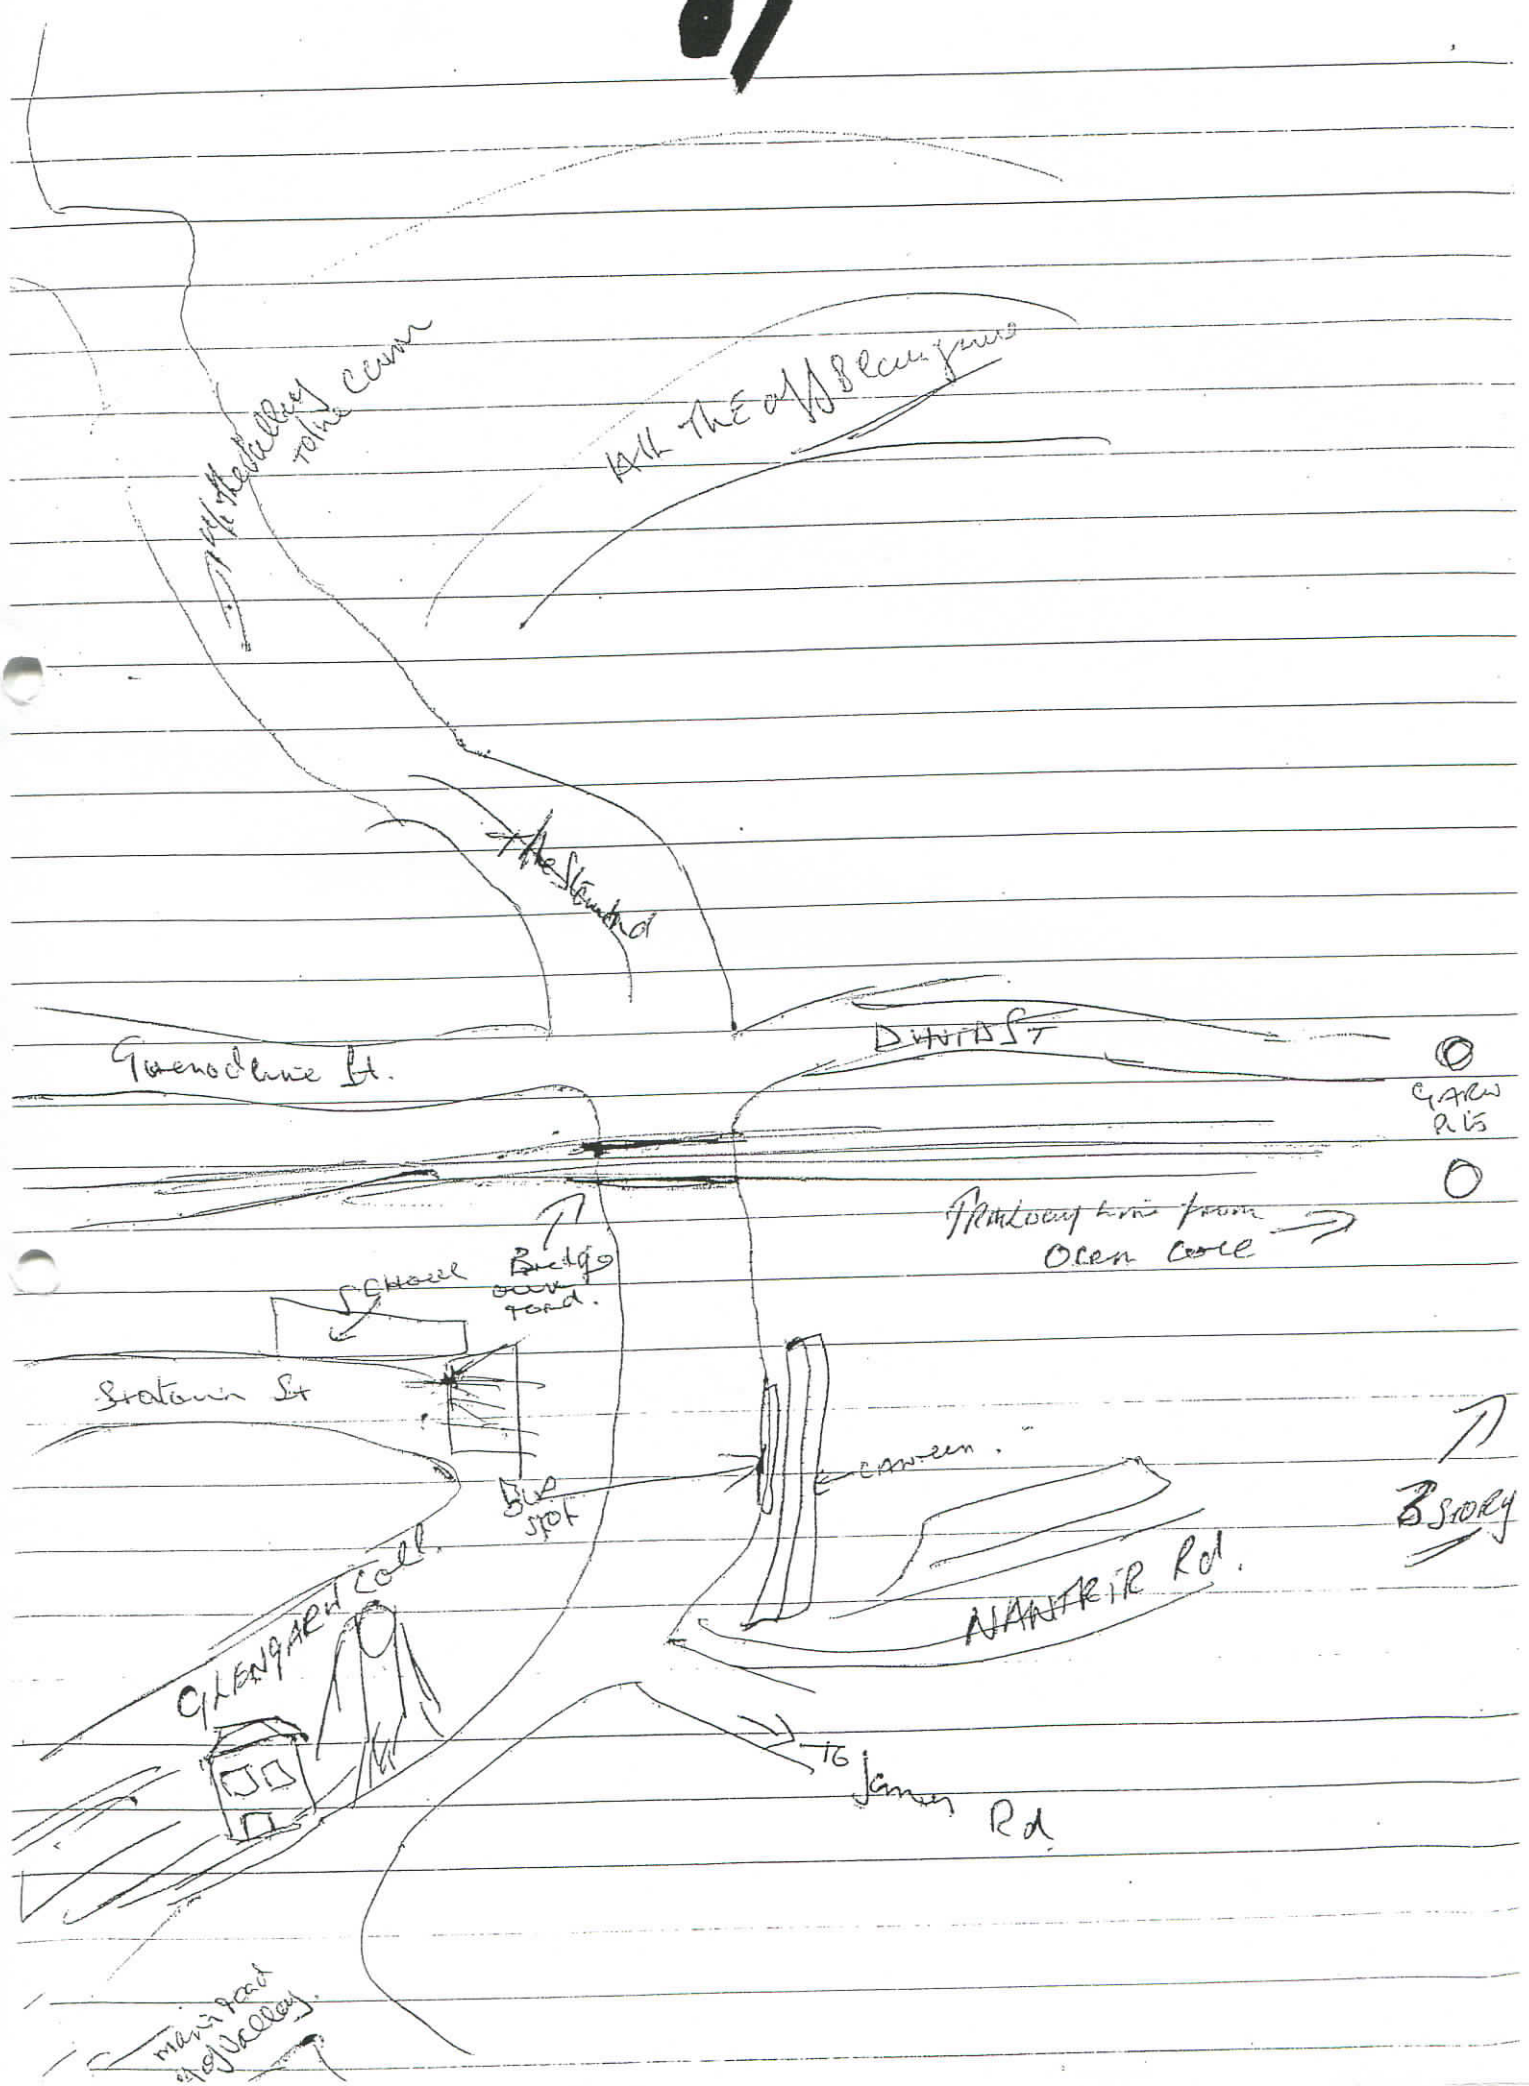 up the valley
to the
Hill THE off Blaengarw
The Strand
DAVID ST
St.
GARW
Pits
Railway line from
Ocean Coal
SCHOOL
Bridge
over
road.
Station St
CANTEEN.
Bus
spot
3 STORY
GLENGARW Coll.
NANTHIR Rd.
To
James
Rd
main road
of Valley.